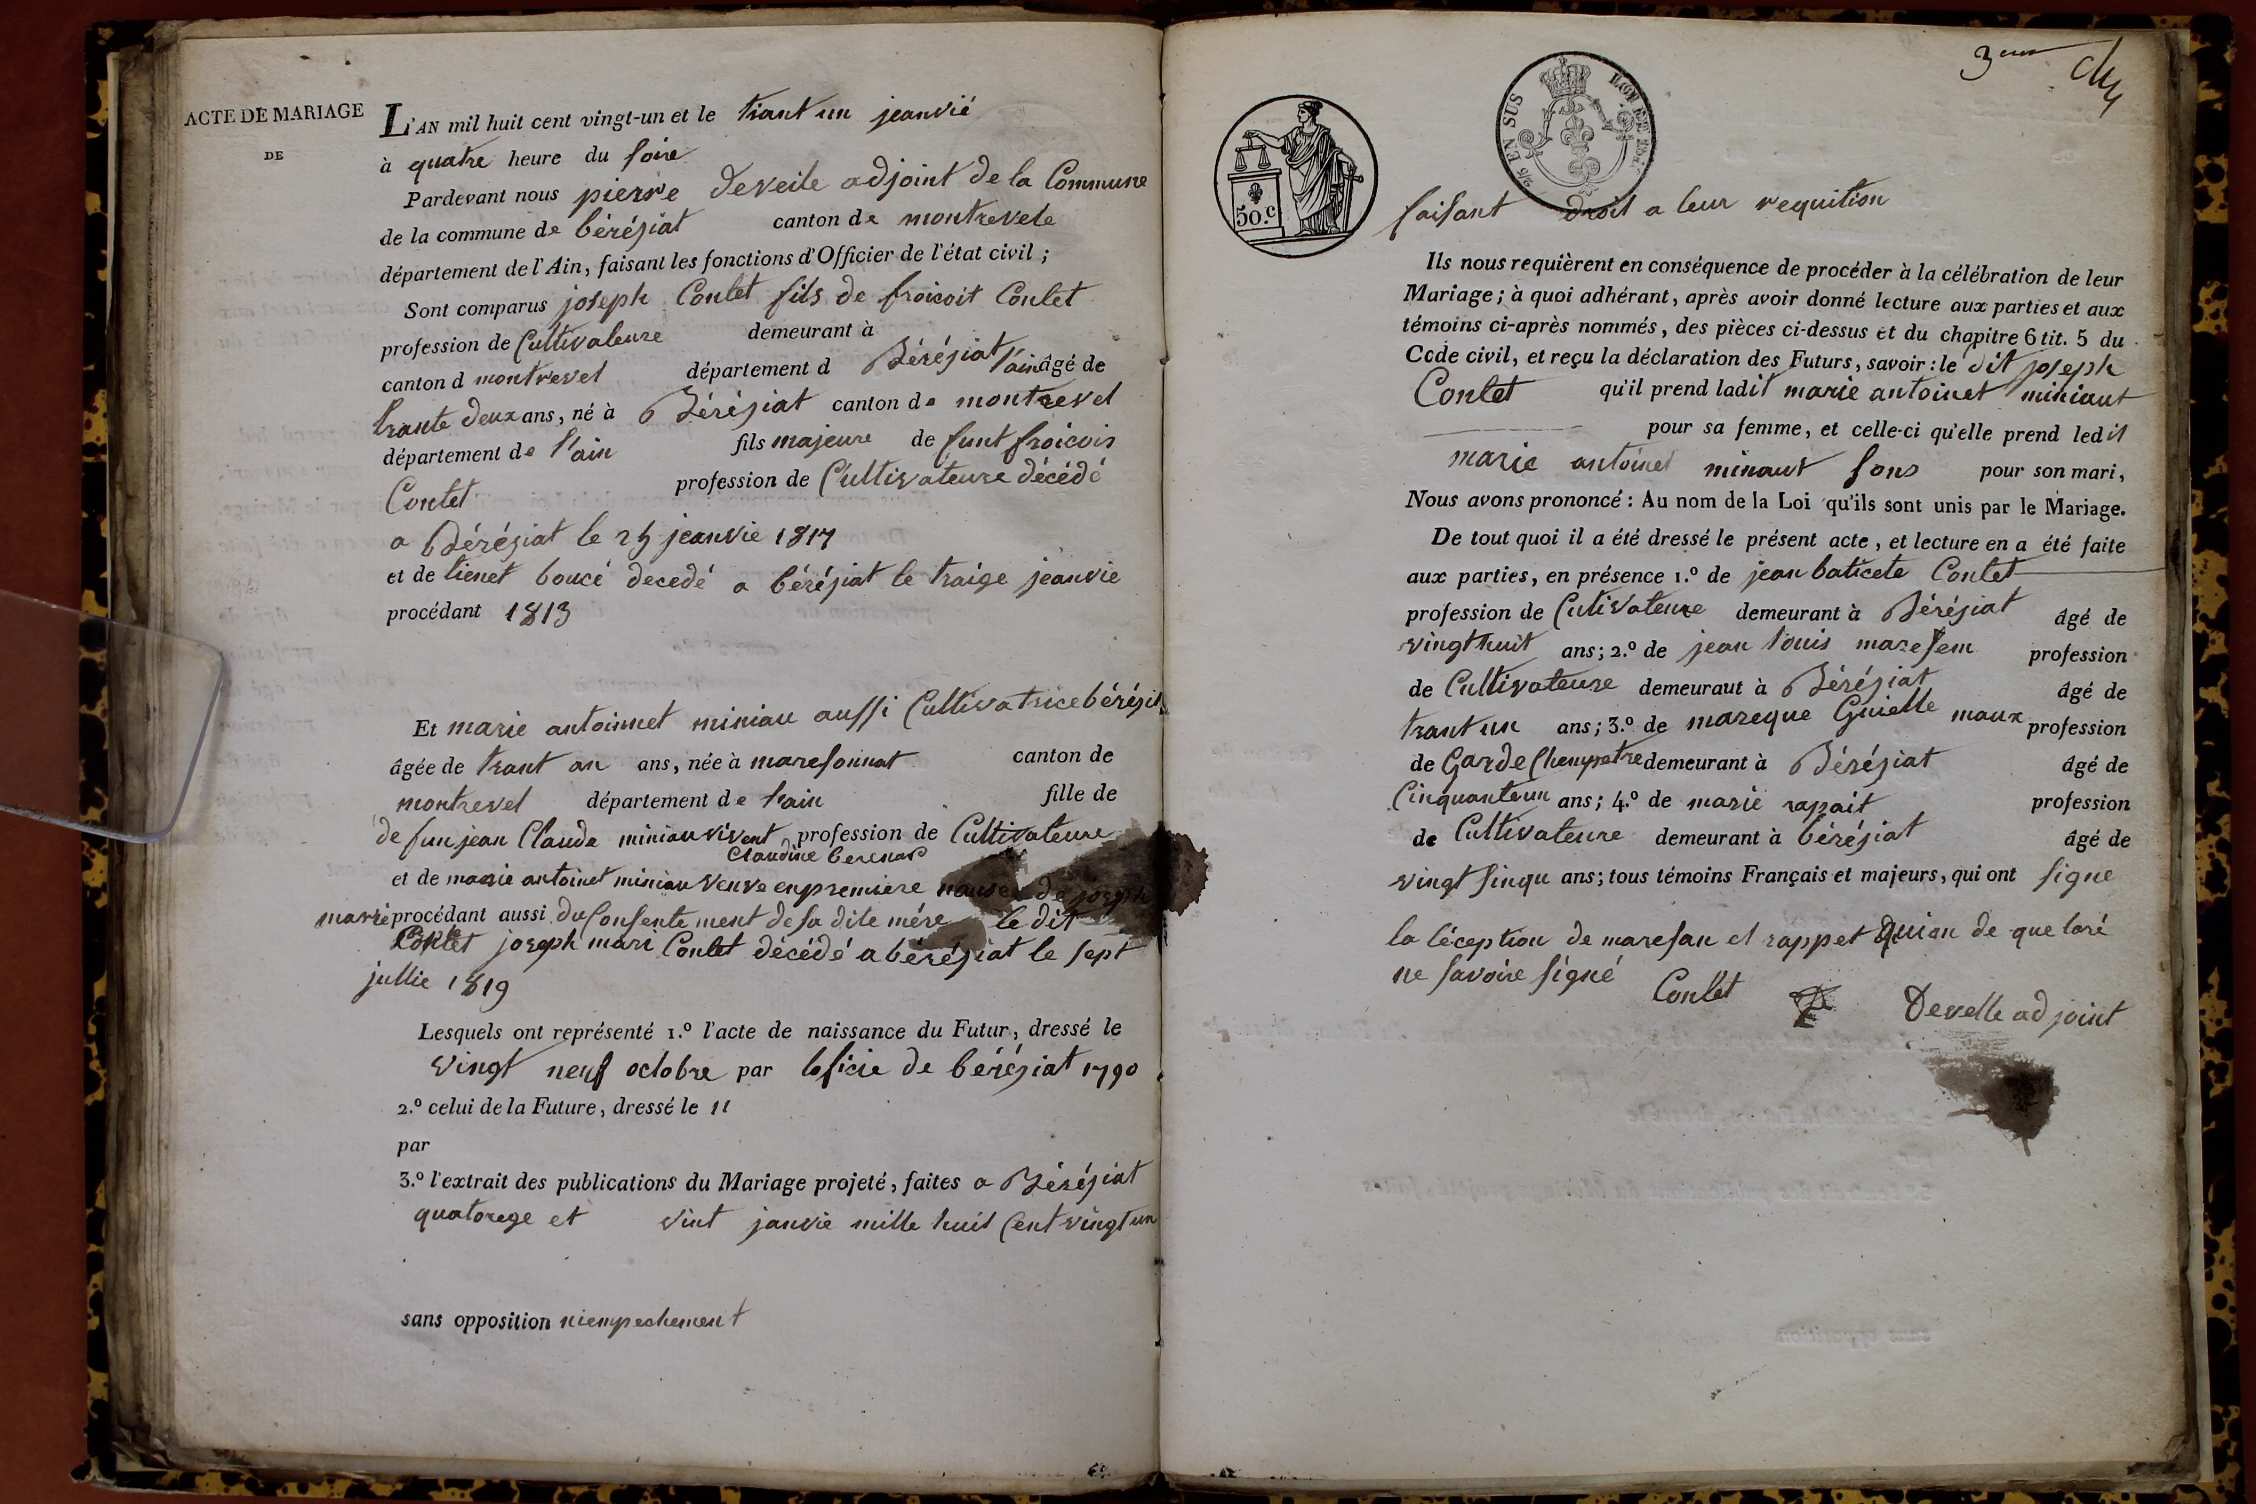 ACTE DE MARIAGE
DE
L'AN mil huit cent vingt-un et le trant un jeanvié
à quatre heure du soire
Pardevant nous pierre Deveile adjoint de la Commune
de la commune de bérésiat canton de montrevele
département de l'Ain, faisant les fonctions d'Officier de l'état civil ;
Sont comparus joseph Contet fils de froicoit Contet
profession de Cultivateure demeurant à
canton d montrevel département d Bérésiat l'ain âgé de
trante deux ans, né à Bérésiat canton de montrevel
département de l'ain fils majeure de funt froicois
Contet profession de Cultivateure décédé
a Bérésiat le 25 jeanvie 1817
et de lienet boucé decedé a bérésiat le traige jeanvie
procédant 1813
Et marie antoinnet miniau aussi Cultivatrice bérésit
âgée de trant an ans, née à maresonnat canton de
montrevel département de l'ain fille de
de fun jean Claude miniau vivent profession de Cultivateure
Claudine berenas
et de marie antoinet miniau veuve en premiere de joseph
marie procédant aussi du Consentement de sa dite mére le dit
Contet joseph mari Contet décédé a bérésiat le sept
jullie 1819
Lesquels ont représenté 1.º l'acte de naissance du Futur, dressé le
vingt neuf octobre par loficie de bérésiat 1790
2.º celui de la Future, dressé le 11
par
3.º l'extrait des publications du Mariage projeté, faites a Bérésiat
quatorege et vint janvie mille huit Cent vingt un
sans opposition niempechement
3eme
EN SUS
50.c
faisant droit a leur requition
Ils nous requièrent en conséquence de procéder à la célébration de leur
Mariage ; à quoi adhérant, après avoir donné lecture aux parties et aux
témoins ci-après nommés, des pièces ci-dessus et du chapitre 6 tit. 5 du
Code civil, et reçu la déclaration des Futurs, savoir : le dit joseph
Contet qu'il prend ladit marie antoinet miniaut
pour sa femme, et celle-ci qu'elle prend ledit
marie antoinet minaut sons pour son mari,
Nous avons prononcé : Au nom de la Loi qu'ils sont unis par le Mariage.
De tout quoi il a été dressé le présent acte, et lecture en a été faite
aux parties, en présence 1.º de jean baticete Contet
profession de Cutivateure demeurant à Bérésiat âgé de
vingthuit ans ; 2.º de jean louis maresem profession
de Cultivateure demeuraut à Bérésiat âgé de
trant un ans ; 3.º de mareque Guielle maux profession
de Garde Chempetre demeurant à Bérésiat âgé de
Cinquanteun ans ; 4.º de marie rapait profession
de Cultivateure demeurant à bérésiat âgé de
vingt sinqu ans ; tous témoins Français et majeurs, qui ont signe
la léception de maresan et rappet quion de que laré
ne savoire signé Contet Develle adjoint